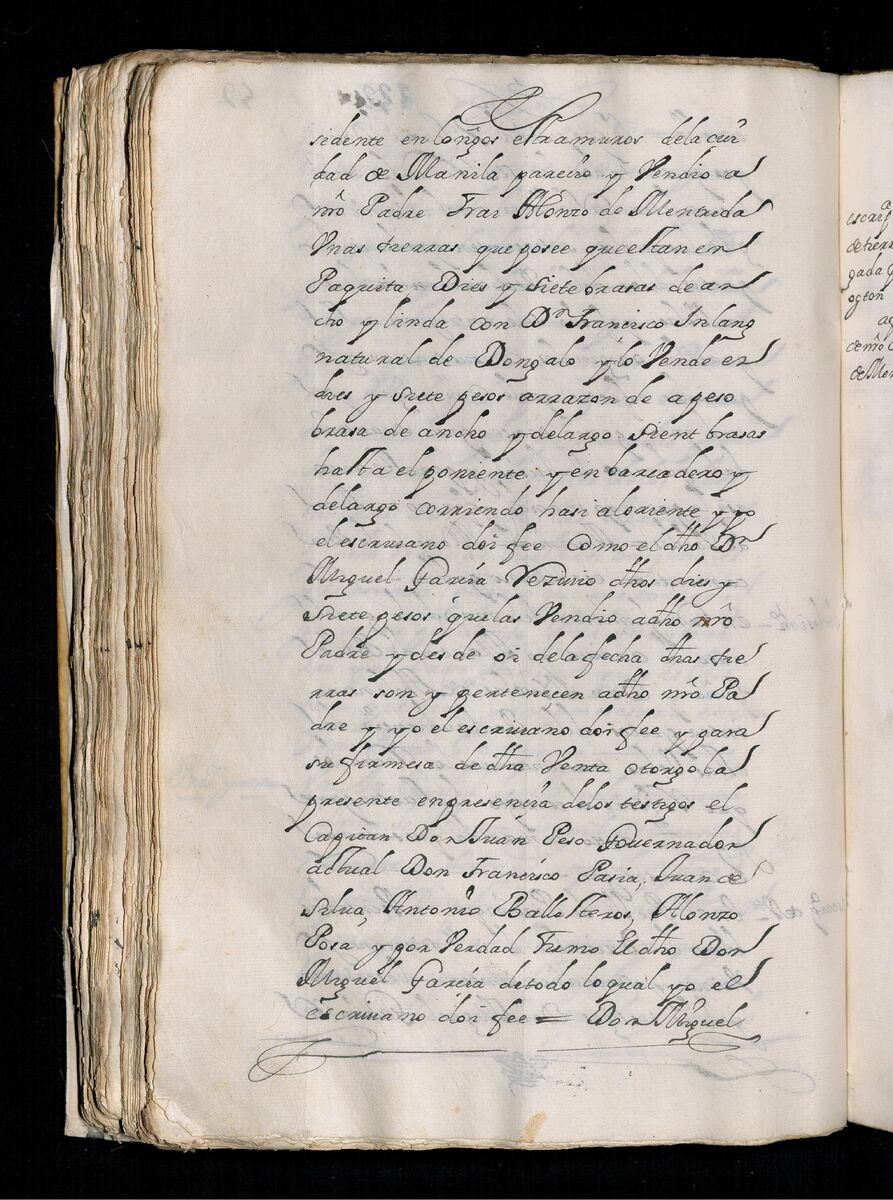 sidente en longos extramuros dela ciu
dad de Manila parecio y Vendio a
nrõ Padre Frai Alonzo de Mentrida
Unas tierras que posee que estan en
Paquita Dies y siete brasas de an
cho y linda con Dn Francisco Inlang
natural de Dongalo y lo Vende en
dies y siete pesos arrazon de a peso
brasa de ancho y delargo sient brasas
hasta el poniente y enbarcadero y
delargo corriendo hasi aloriente y yo
el escrivano doi fee Como el dho Dn
Miguel Garcia Rezivio dhos dies y
siete pesos que las Vendio adho nrõ
Padre y des de oi dela fecha dhas tie
rras son y perteneçen adho nrõ Pa
dre y yo el escrivano doi fee y para
su firmesa de dha Venta otorgo la
presente enpresençia delos testigos el
Capitan Don Juan Peso Governador
actual Don Francisco Pasia, Juan de
Silva, Antonio Ballesteros, Alonzo
Posa, y por Verdad Firmo El dho Don
Miguel Garcia detodo lo qual yo el
escrivano doi fee = Don Miguel
escrip
de tierr
gada
octon
de nrõ
de Men